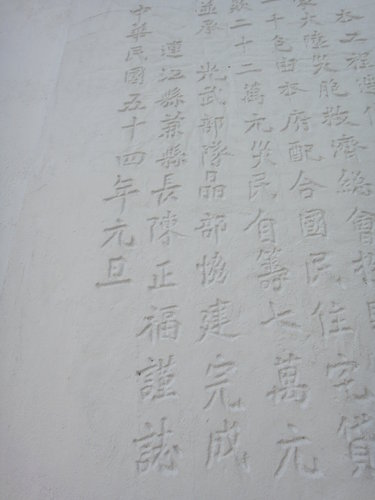 本工程
大陸災胞救濟總會撥
十包由本府配合國民住宅貸
款二十二萬元災民自籌七萬元
並承光武部隊晶部協建完成
連江縣兼縣長陳正福謹誌
中華民國五十四年元旦